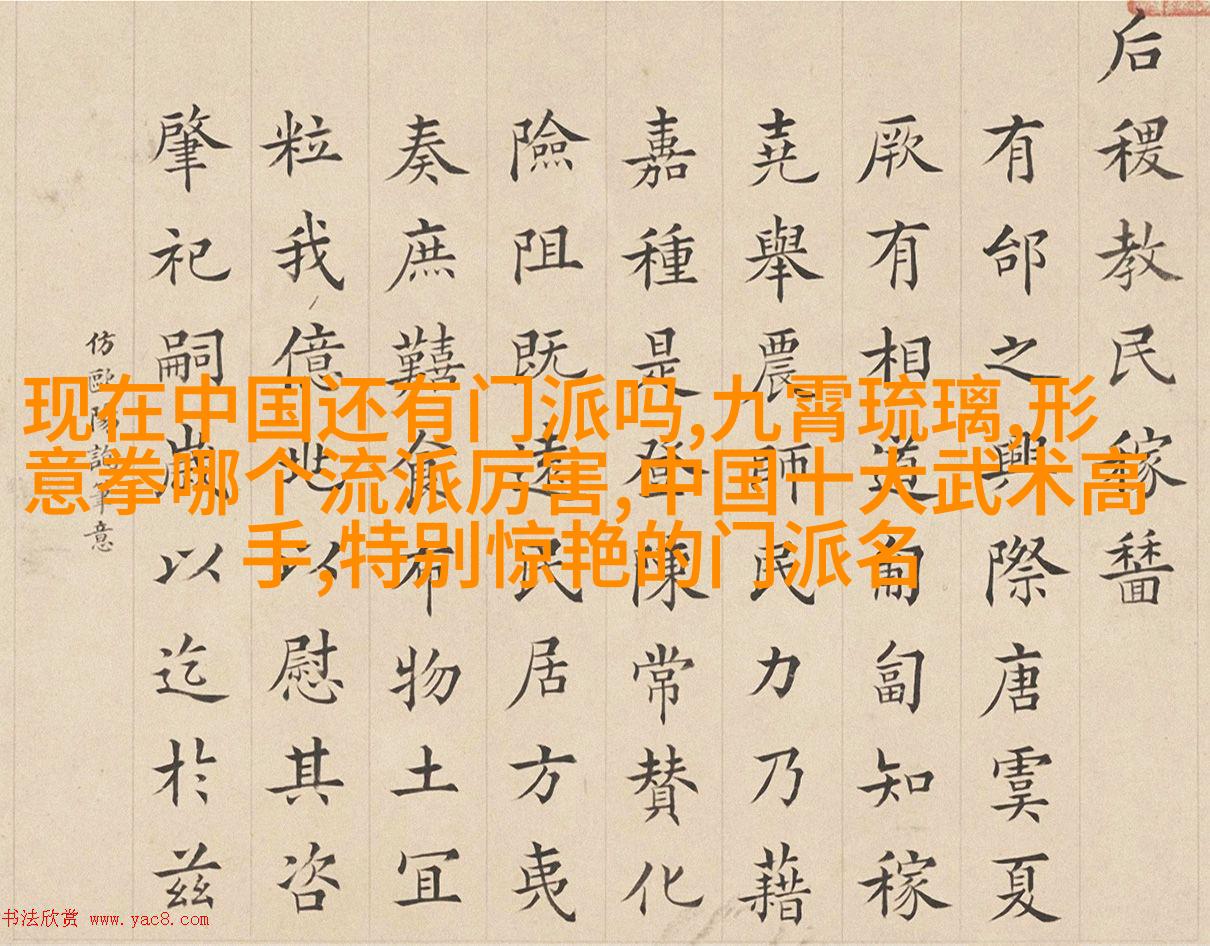 后稷教民稼穡
有邰之興際唐虞夏
厥有相道匍匐知稼
堯舉農師民力乃藉
嘉種是登陳常贊化
險阻既遠民居方夷
奏庶囏食布物土宜
粒我億兆以慰其咨
肇祀嗣歲以迄於茲
仿歐陽詢筆意
现在中国还有门派吗,九霄琉璃,形
意拳哪个流派厉害,中国十大武术高
手,特别惊艳的门派名
书法欣赏 www.yac8.com